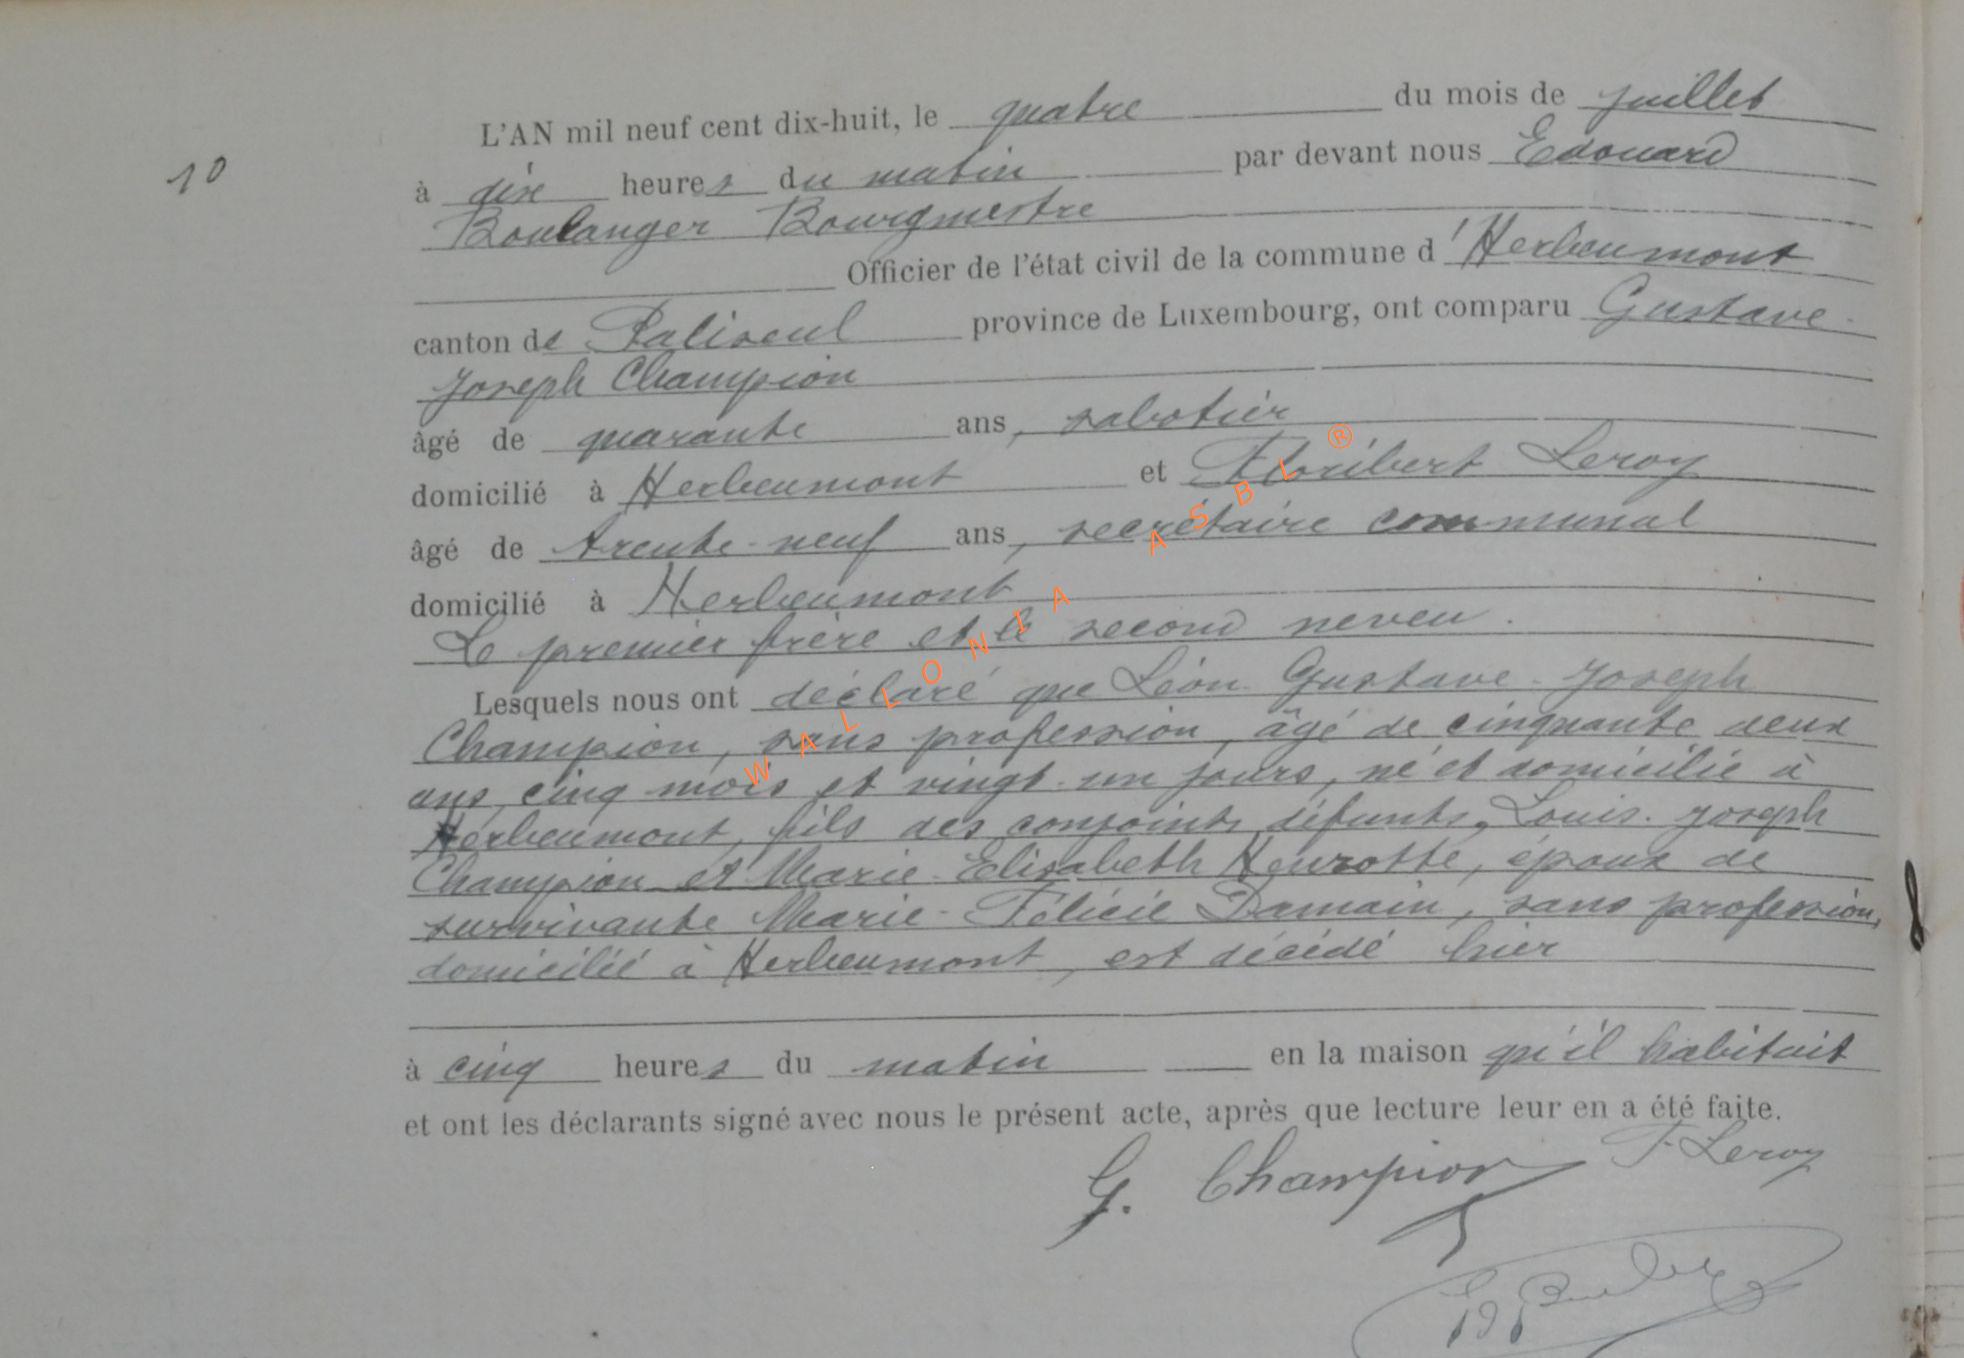 L'AN mil neuf cent dix-huit, le quatre du mois de juillet
10
à dix heures du matin par devant nous Edouard
Boulanger Bourgmestre
Officier de l'état civil de la commune d'Herbeumont
canton de Paliseul province de Luxembourg, ont comparu Gustave-
Joseph Champion
âgé de quarante ans, sabotier
domicilié à Herbeumont et Floribert Leroy
âgé de trente-neuf ans, secrétaire communal
domicilié à Herbeumont
Le premier frère et le second neveu.
Lesquels nous ont déclaré que Léon-Gustave-Joseph
Champion, sans profession, âgé de cinquante deux
ans, cinq mois et vingt-un jours, né et domicilié à
Herbeumont, fils des conjoints défunts, Louis-Joseph
Champion et Marie-Elisabeth Henrotte, époux de
survivante Marie-Félicie Damain, sans profession,
domiciliée à Herbeumont, est décédé hier
à cinq heures du matin en la maison qu'il habitait
et ont les déclarants signé avec nous le présent acte, après que lecture leur en a été faite.
G. Champion F. Leroy
WALLONIA ASBL ®